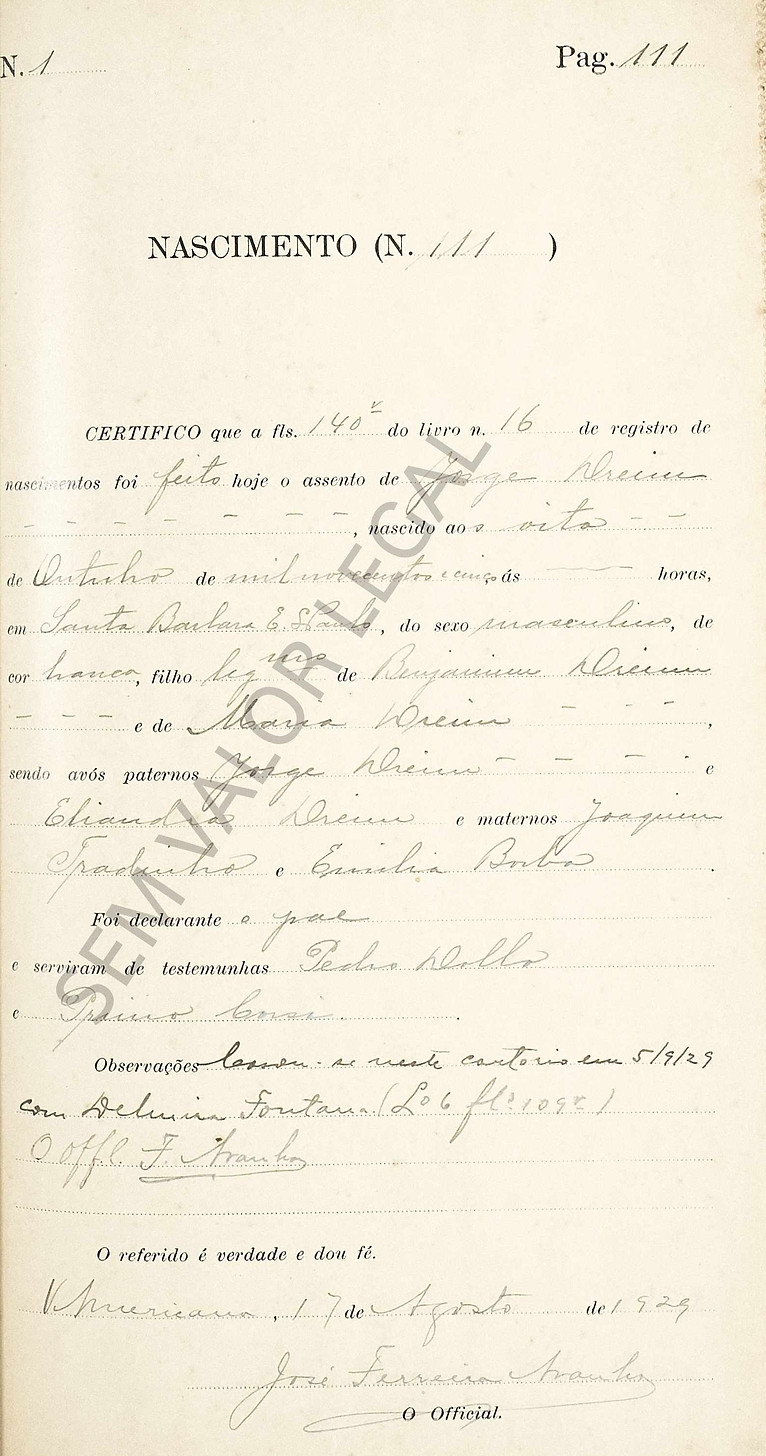 N. 1
Pag. 111
NASCIMENTO (N. 111 )
CERTIFICO que a fls. 140v do livro n. 16 de registro de
nascimentos foi feito hoje o assento de Jorge
- - - - - - - , nascido aos oito - -
de Outubro de mil novecentos e cinco, ás — horas,
em Santa Barbara E. S. Paulo, do sexo masculino, de
cor branca, filho leg mo de Benjamim
- - - - e de Maria - - - ,
sendo avós paternos Jorge - - - - e
Eliandra e maternos Joaquim
e Emilia Borba .
Foi declarante o pae
e serviram de testemunhas Pedro
e .
Observações Casou-se neste cartorio em 5/9/29
com Delmira Fontana (Lo 6 fls 109v)
O offl. F. Aranha
O referido é verdade e dou fé.
V. Americana, 17 de Agosto de 1929
José Ferreira Aranha
O Official.
SEM VALOR LEGAL